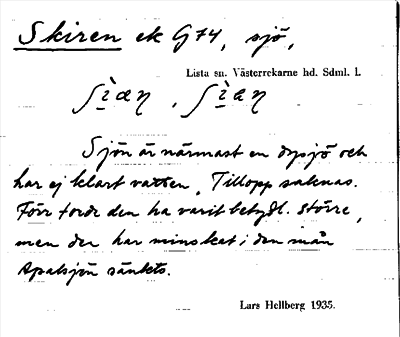 Skiren ek G74, sjö,
Lista sn. Västerrekarne hd. Sdml. l.
Sjön är närmast en dysjö och
har ej klart vatten. Tillopp saknas.
Förr torde den ha varit betydl. större,
men den har minskat i den mån
Apalsjön sänkts.
Lars Hellberg 1935.